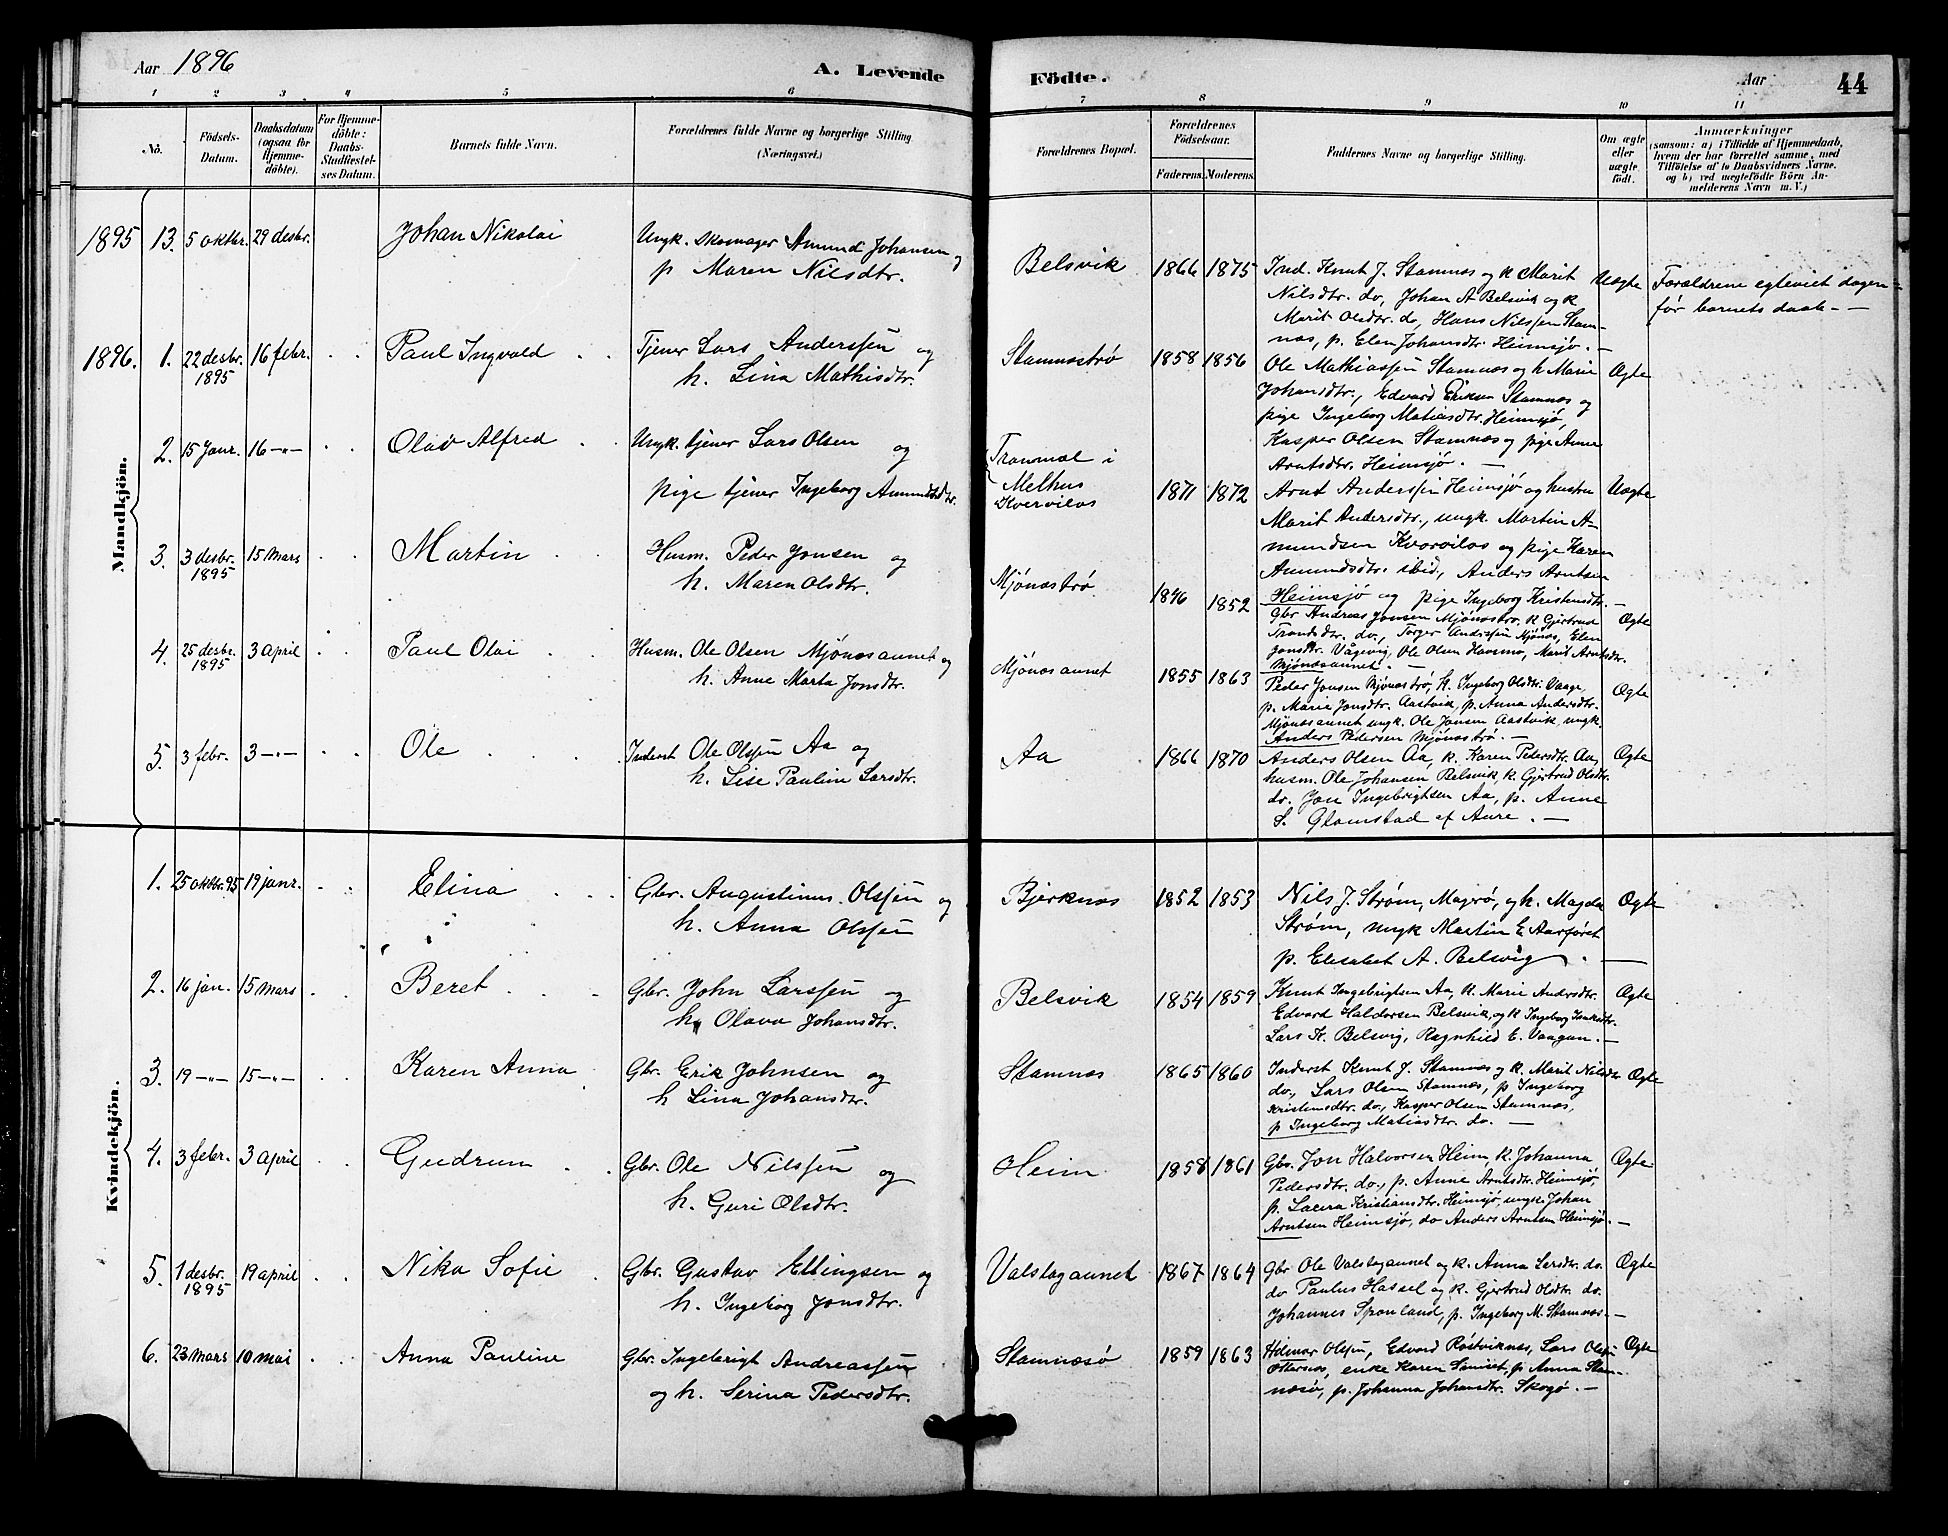 Aar 1896
A. Levende Födte.
Aar 44
1 2 3 4 5 6 7 8 9 10 11
No.
Födsels-
Datum.
Daabsdatum
(ogsaa for
Hjemme-
döbte).
For Hjemme-
döbte:
Daabs-
Stadfæstel-
ses Datum.
Barnets fulde Navn.
Forældrenes fulde Navne og borgerlige Stilling
(Næringsvei.)
Forældrenes Bopæl.
Forældrenes
Födselsaar.
Faderens. Moderens.
Faddernes Navne og borgerlige Stilling.
Om ægte
eller
uægte
födt.
Anmærkninger
(saasom: a) i Tilfælde af Hjemmedaab,
hvem der har forrettet samme, med
Tilföielse af to Daabsvidners Navne.
og b) ved uægtefödte Börn An-
melderens Navn m. V.)
Mandkjön.
1895 13. 5 oktbr. 29 desbr. Johan Nikolai
Ungk. Skomager Amund Johansen og
p Maren Nilsdtr.
Belsvik 1866 1875
Ind. Knut J. Stamnæs og k Marit
Nilsdtr. do, Johan A Belsvik og k
Marit Olsdtr. do, Hans Nilssen Stam-
næs, p. Elen Johansdtr. Heimsjø. —
Uægte
Forældrene egteviet dagen
før barnets daab. —
1896. 1. 22 desbr. 1895 16 febr. Paul Ingvald
Tjener Lars Anderssen og
h. Lina Mathisdtr.
Stamnæstrø 1858 1856
Ole Mathiassen Stamnæs og h Marie
Johansdtr., Edvard Eriksen Stamnæs og
pige Ingeborg Matiasdtr. Heimsjø,
Kasper Olsen Stamnæs og pige Anne
Arntsdtr. Heimsjø. —
Ægte
2. 15 Janr. 16 —"— Olav Alfred
Ungk. tjener Lars Olsen og
pige tjener Ingeborg Amundsdtr.
Tranmæl i
Melhus
Kvervilos
1871 1872
Arnt Anderssen Heimsjø og hustru
Marit Andersdtr., ungk. Martin A-
mundsen Kvorvilos og pige Karen
Amundsdtr. ibid., Anders Arntsen
Heimsjø og pige Ingeborg Kristensdtr. —
Uægte
3. 3 desbr. 1895 15 Mars Martin
Husm. Peder Jonsen og
h. Maren Olsdtr.
Mjønæstrø 1846 1852
Gbr Andreas Jonsen Mjønæstrø. k Gjertrud
Trondsdtr. do., Torger Anderssen Mjønæs, Elen
Jonsdtr. Vågavig, Ole Olsen Havsmo, Marit Arntsdtr.
Mjønæsaunet. —
Ægte
4. 25 desbr. 1895 3 april Paul Olai
Husm. Ole Olsen Mjønæsaunet og
h. Anne Marta Jonsdtr.
Mjønæsaunet 1855 1863
Peder Jonsen Mjønæstrø, k. Ingeborg Olsdtr. Vaage,
p. Marie Jonsdtr. Aastvik, p. Anna Andersdtr.
Mjønæsaunet ungk. Ole Jonsen Aastvik, ungk.
Anders Pedersen Mjønæstrø. —
Ægte
5. 3 febr. 3 —"— Ole
Inderst Ole Olssen Aa og
h. Lise Pauline Larsdtr.
Aa 1866 1870
Anders Olsen Aa, k. Karen Pedersdtr. Aa,
husm. Ole Johansen Belsvik, k. Gjertrud Olsdtr.
do. Jon Ingebrigtsen Aa, p. Anne
S. Glamstad af Aure. —
Ægte
Kvindekjön.
1. 25 oktbr. 95 19 janr. Elina
Gbr. Augustinus Olssen og
h. Anna Olssen
Bjerknæs 1852 1853
Nils J. Strøm, Magerø, og h. Magda
Strøm, ungk Martin E Aarføret
p. Elisabet A. Belsvig. —
Ægte
2. 16 jan. 15 mars Beret
Gbr. John Larssen og
h. Olava Johansdtr.
Belsvik 1854 1859
Knut Ingebrigtsen Aa, k. Marie Andersdtr.
Edvard Haldorsen Belsvik, og k Ingeborg Isaksdtr.
Lars K. Belsvig, Ragnhild E. Vaagan. —
Ægte
3. 19 —"— 15 —"— Karen Anna
Gbr. Erik Johnsen og
h Lina Johansdtr.
Stamnæs 1865 1860
Inderst Knut J. Stamnæs og k. Marit Nilsdtr
do, Lars Olsen Stamnæs, p Ingeborg
Kristensdtr. do., Kasper Olsen Stamnæs,
p Ingeborg Matiasdtr. do. —
Ægte
4. 3 febr. 3 april Gudrun
Gbr. Ole Nilssen og
h. Guri Olsdtr.
Heim 1858 1861
Gbr. Jon Halvorsen Heim, k. Johanna
Pedersdtr. do., p. Anne Arntsdtr. Heimsjø,
p. Laura Kristiansdtr. Heimsjø, ungk. Johan
Arntsen Heimsjø, do Anders Arntsen Heimsjø. —
Ægte
5. 1 desbr. 1895 19 april Nika Sofie
Gbr. Gustav Ellingsen og
h. Ingeborg Jonsdtr.
Valslagaunet 1867 1864
Gbr Ole Valslagaunet og k. Anna Larsdtr. do.
do Paulus Hassel og k. Gjertrud Olsdtr. do.
Johannes Spanland, p. Ingeborg M. Stamnæs. —
Ægte
6. 23 mars 10 mai Anna Pauline
Gbr. Ingebrigt Andreassen
og h. Serina Pedersdtr.
Stamnæsø 1859 1863
Hilmar Olsen, Edvard Røstviknæs, Lars Olsen
Otternæs, enke Karen Simiset, p. Anna Stam-
næsø, p. Johanna Johansdtr. Skogø. —
Ægte